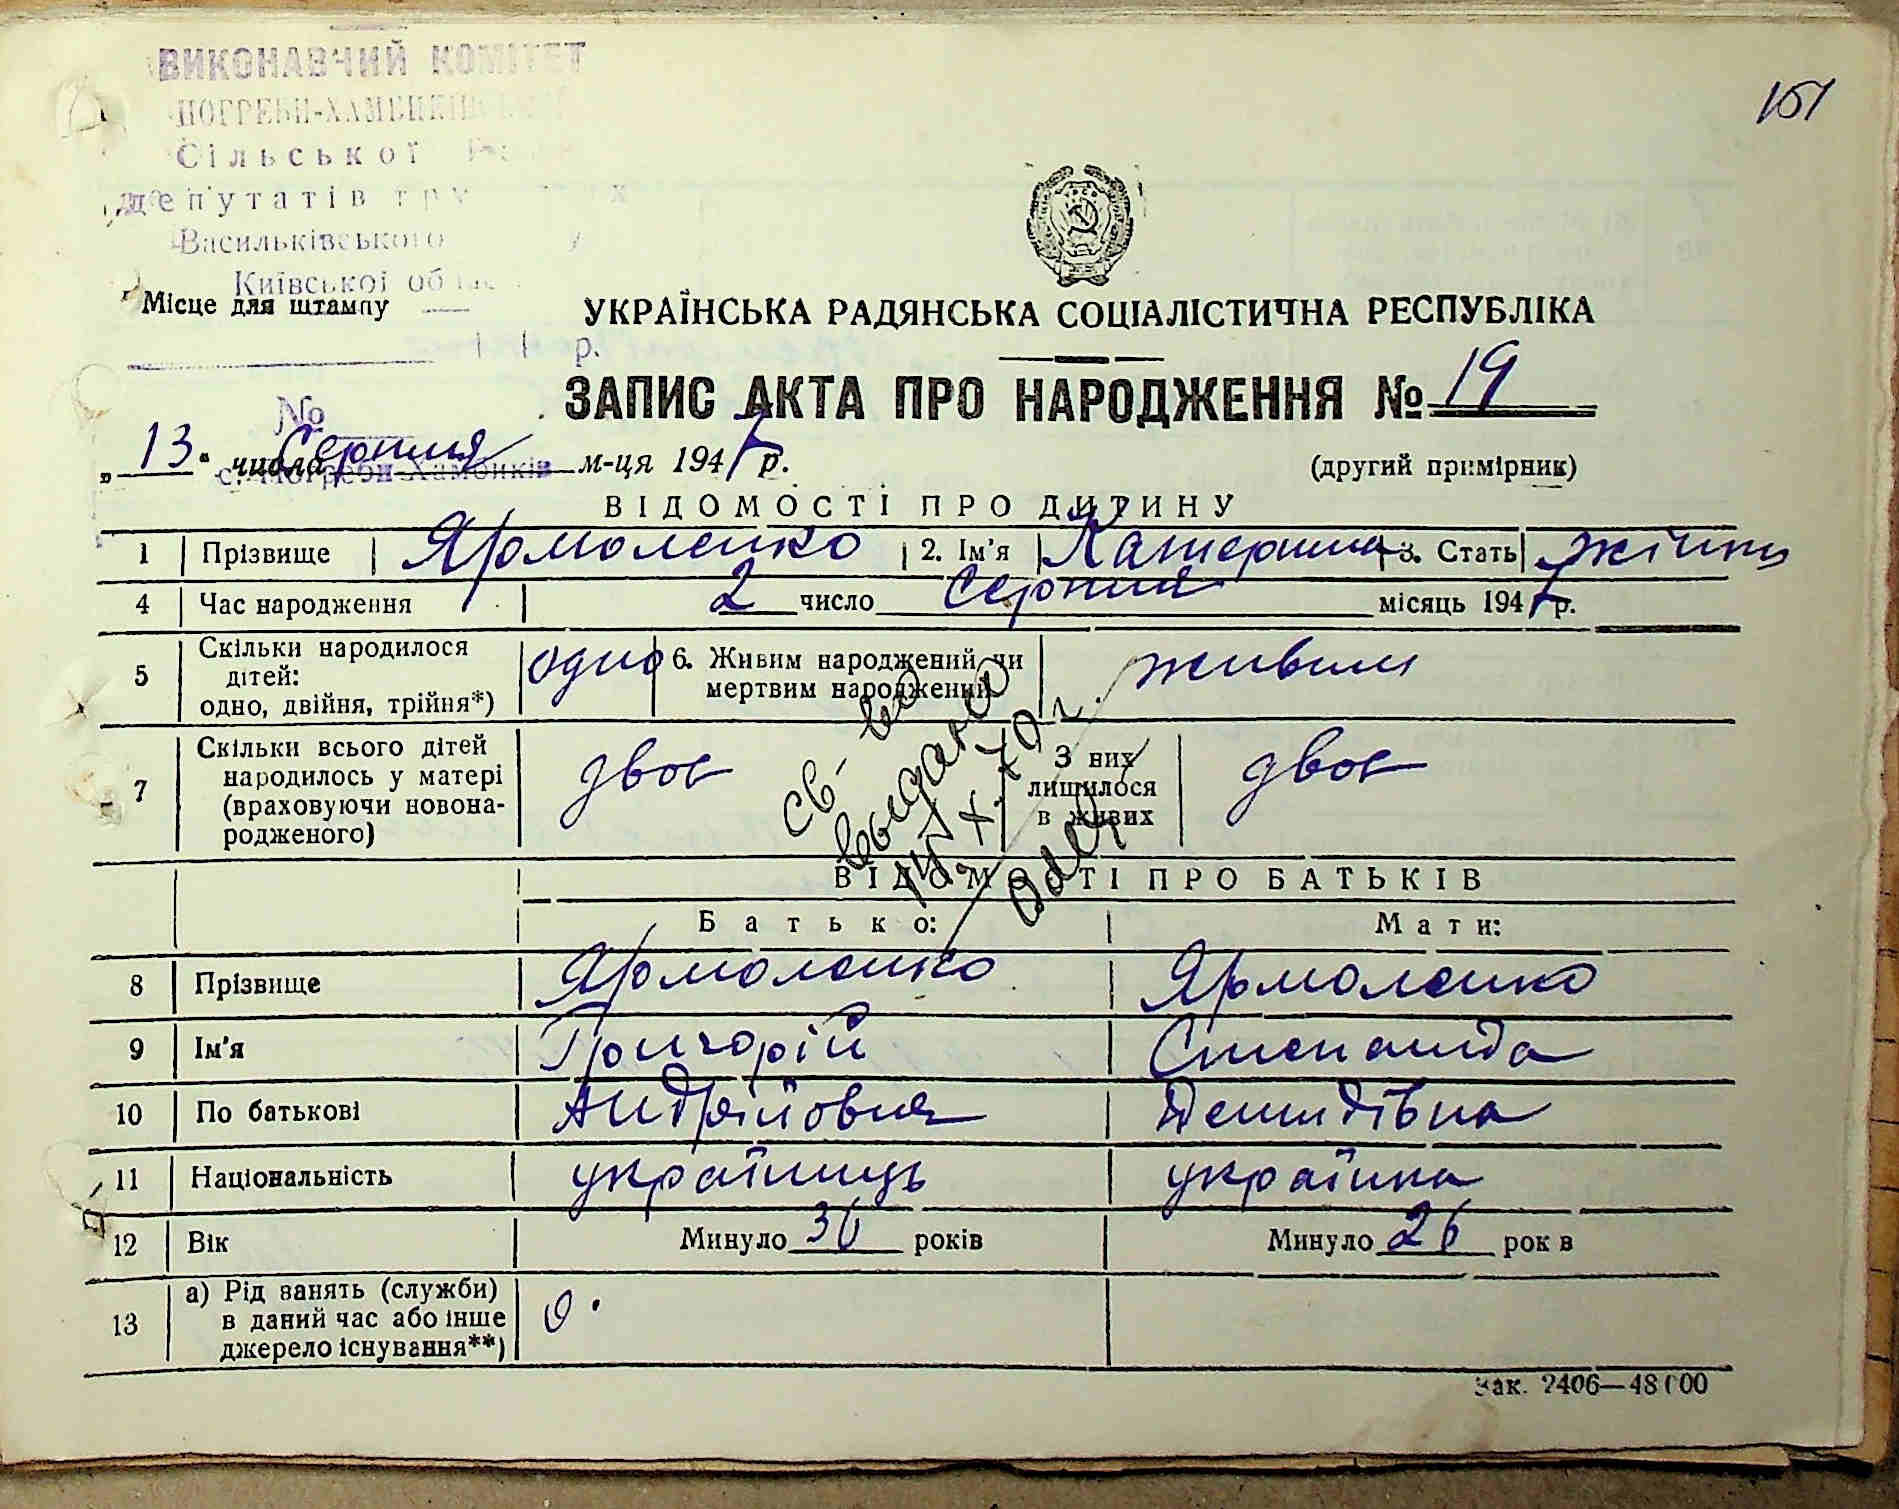 151
ВИКОНАВЧИЙ КОМІТЕТ
ПОГРЕБИ-ХАМБИКІВСЬКОЇ
Сільської
депутатів тру х
Васильківського
Київської об
Місце для штампу
р.
№
с. Погреби-Хамбиків
УКРАЇНСЬКА РАДЯНСЬКА СОЦІАЛІСТИЧНА РЕСПУБЛІКА
ЗАПИС АКТА ПРО НАРОДЖЕННЯ № 19
„ 13 " числа Серпня м-ця 1947 р. (другий примірник)
ВІДОМОСТІ ПРО ДИТИНУ
1 Прізвище Ярмоленко 2. Ім'я Катерина 3. Стать жіноч
4 Час народження 2 число Серпня місяць 1947 р.
5 Скільки народилося дітей: одно, двійня, трійня*) одно 6. Живим народжений чи мертвим народжений живим
7 Скільки всього дітей народилось у матері (враховуючи новонародженого) двоє З них лишилося в живих двоє
св-во
выдано
X. 70 г.
ВІДОМОСТІ ПРО БАТЬКІВ
Батько: Мати:
8 Прізвище Ярмоленко Ярмоленко
9 Ім'я Григорій Степанида
10 По батькові Андрійович Демидівна
11 Національність українець українка
12 Вік Минуло 36 років Минуло 26 рок в
13 а) Рід занять (служби) в даний час або інше джерело існування**)
Зак. 2406—48000